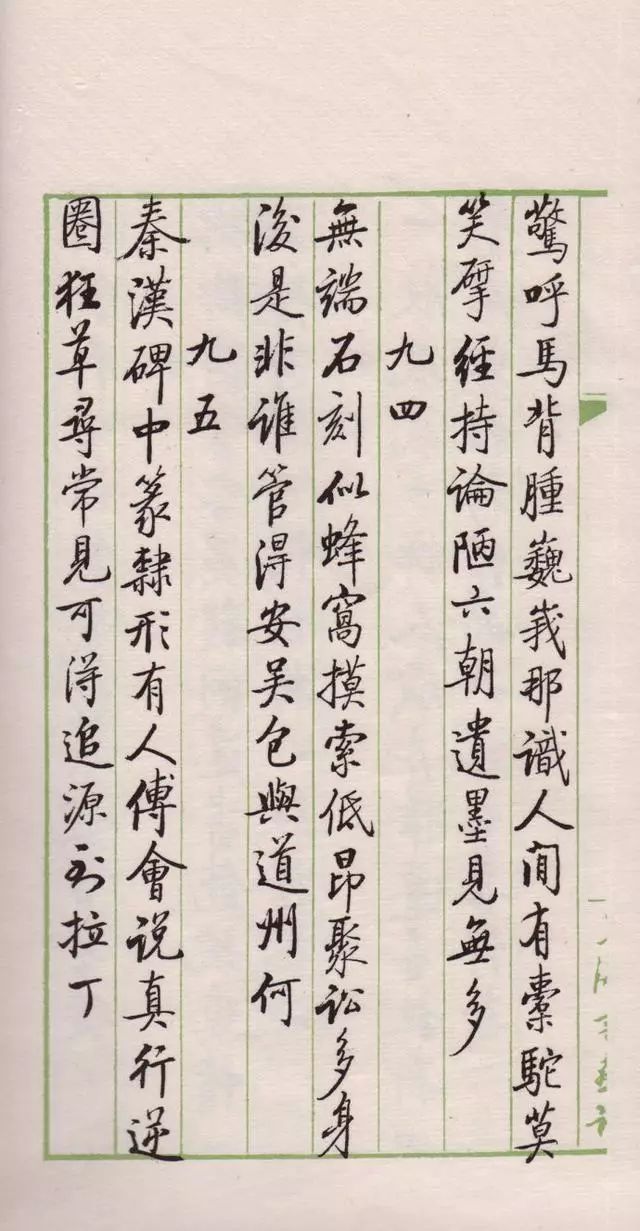 驚呼馬背腫巍峩那識人間有橐駝莫
笑揅經持論陋六朝遺墨見無多
九四
無端石刻似蜂窩摸索低昂聚訟多身
後是非誰管得安吴包與道州何
九五
秦漢碑中篆隸形有人傅會说真行逆
圈狂草尋常見可得追源到拉丁